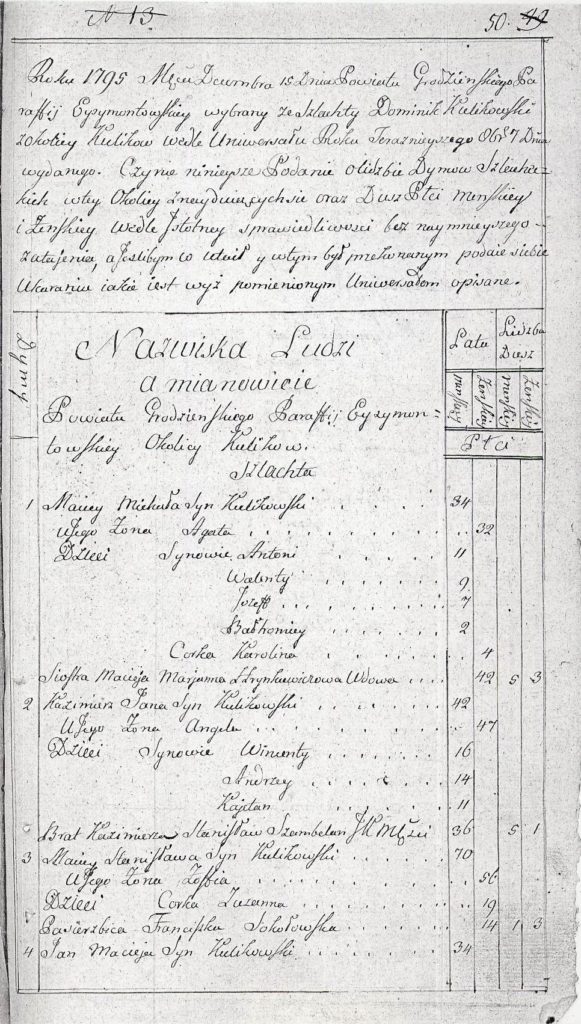 N 13
50. 49
Roku 1795 Mca Decembra 15 Dnia Powiatu Grodzieńskiego Pa
raffij Eysymontowskiey wybrany ze Szlachty Dominik Kulikowski
z okolicy Kulikow wedle Uniwersału Roku Teraznieyszego 8br 7 Dnia
wydanego. Czynię ninieysze Podanie o liczbie Dymow Szlachec-
kich w tey Okolicy znayduiących się oraz Dusz Płci męnskiey
i Żenskiey, wedle Istotney sprawiedliwosci bez naymnieyszego
zataienia, a Jeslibym co utaił y w tym był przekonanym podaię siebie
Ukaraniu iakie iest wyż pomienionym Uniwersałem opisane.
Dymy
Nazwiska Ludzi
a mianowicie
Powiatu Grodzieńskiego Paraffij Eysymon-
towskiey Okolicy Kulikow.
Szlachta
Lata
Liczba Dusz
męnskiey
Żenskiey
męnskiey
Żenskiey
Płci
1 Maciey Michała Syn Kulikowski 34
U Jego Żona Agata 32
Dzieci Synowie Antoni 11
Walenty 9
Jozeff 7
Bałtromiey 2
Corka Karolina 4
Siostra Macieja Maryanna Wdowa 42 5 3
2 Kazimierz Jana Syn Kulikowski 42
U Jego Żona Angela 47
Dzieci Synowie Wincenty 16
Andrzey 14
Kajetan 11
Brat Kazimierza Stanisław Szambelan JK Mści 36 5 1
3 Maciey Stanisława Syn Kulikowski 70
U Jego Żona Zoffia 56
Dzieci Corka Zuzanna 19
Pasierzbica Franciszka Sokołowska 14 1 3
4 Jan Macieja Syn Kulikowski 34